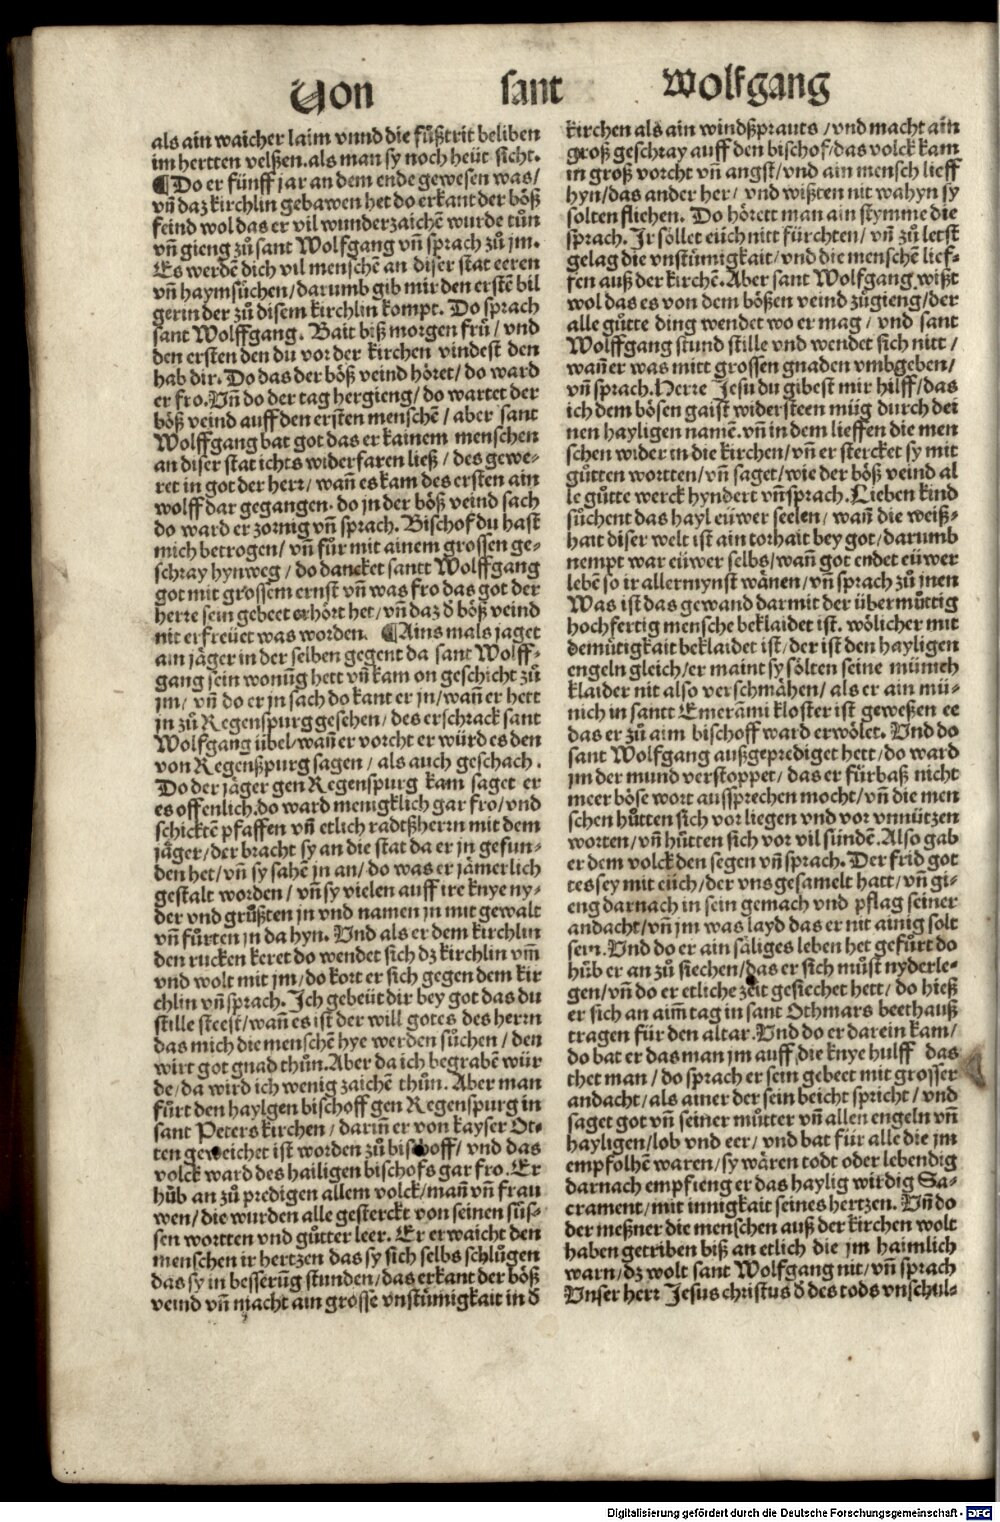 Von sant Wolfgang
als ain waicher laim vnnd die fůßtrit beliben
im hertten velßen. als man sy noch heüt sicht.
¶Do er fünff jar an dem ende gewesen was/
vñ daz kirchlin gebawen het do erkant der böß
feind wol das er vil wunderzaichē wurde tůn
vñ gieng zů sant Wolfgang vñ sprach zů jm.
Es werdē dich vil menschē an diser stat eeren
vñ haymsůchen/darumb gib mir den erstē bil
gerin der zů disem kirchlin kompt. Do sprach
sant Wolffgang. Bait biß morgen frů/ vnd
den ersten den du vor der kirchen vindest den
hab dir. Do das der böß veind höret/ do ward
er fro. Vñ do der tag hergieng/ do wartet der
böß veind auff den ersten menschē/ aber sant
Wolffgang bat got das er kainem menschen
an diser stat ichts widerfaren ließ/ des gewe-
ret in got der herr/ wañ es kam des ersten ain
wolff dar gegangen. do jn der böß veind sach
do ward er zornig vñ sprach. Bischof du hast
mich betrogen/ vñ fůr mit ainem grossen ge-
schray hynweg/ do dancket santt Wolffgang
got mit grossem ernst vñ was fro das got der
herre sein gebeet erhört het/ vñ daz d̄ böß veind
nit erfreüet was worden. ¶Ains mals jaget
ain jäger in der selben gegent da sant Wolff-
gang sein wonūg hett vñ kam on geschicht zů
jm/ vñ do er jn sach do kant er jn/wañ er hett
jn zů Regenspurg gesehen/ des erschrack sant
Wolfgang übel/wañ er vorcht er würd es den
von Regenßpurg sagen/ als auch geschach.
Do der jäger gen Regenspurg kam saget er
es offenlich. do ward menigklich gar fro/vnd
schicktē pfaffen vñ etlich radtßherrn mit dem
jäger/der bracht sy an die stat da er jn gefun-
den het/vñ sy sahē jn an/ do was er jämerlich
gestalt worden/ vñ sy vielen auff ire knye ny-
der vnd grůßten jn vnd namen jn mit gewalt
vñ fůrten jn da hyn. Vnd als er dem kirchlin
den rucken keret do wendet sich dz kirchlin vm̄
vnd wolt mit jm/do kort er sich gegen dem kir
chlin vñ sprach. Ich gebeüt dir bey got das du
stille steest/wañ es ist der will gotes des herrn
das mich die menschē hye werden sůchen/ den
wirt got gnad thůn. Aber da ich begrabē wür
de/da wird ich wenig zaichē thůn. Aber man
fůrt den haylgen bischoff gen Regenspurg in
sant Peters kirchen/ darin̄ er von kayser Ot-
ten geweichet ist worden zů bischoff/ vnd das
volck ward des hailigen bischofs gar fro. Er
hůb an zů predigen allem volck/mañ vñ frau
wen/die wurden alle gesterckt von seinen süs-
sen wortten vnd gůtter leer. Er erwaicht den
menschen ir hertzen das sy sich selbs schlůgen
das sy in besserūg stunden/das erkant der böß
veind vñ macht ain grosse vnstümigkait in d̄
kirchen als ain windßprauts/vnd macht ain
groß geschray auff den bischof/das volck kam
in groß vorcht vñ angst/vnd ain mensch lieff
hyn/das ander her/ vnd wißten nit wahyn sy
solten fliehen. Do hörett man ain stymme die
sprach. Ir söllet eüch nitt fürchten/ vñ zů letst
gelag die vnstümigkait/vnd die menschē lief-
fen auß der kirchē. Aber sant Wolfgang wißt
wol das es von dem bößen veind zůgieng/der
alle gůtte ding wendet wo er mag/ vnd sant
Wolffgang stund stille vnd wendet sich nitt/
wañ er was mitt grossen gnaden vmbgeben/
vñ sprach. Herre Jesu du gibest mir hilff/das
ich dem bösen gaist widersteen müg durch dei
nen hayligen namē. vñ in dem lieffen die men
schen wider in die kirchen/vñ er stercket sy mit
gůtten wortten/vñ saget/wie der böß veind al
le gůtte werck hyndert vñ sprach. Lieben kind
sůchent das hayl eüwer seelen/ wañ die weiß-
hait diser welt ist ain torhait bey got/darumb
nempt war eüwer selbs/wañ got endet eüwer
lebē so ir allermynst wänen/vñ sprach zů jnen
Was ist das gewand darmit der übermůttig
hochfertig mensche beklaidet ist. wölicher mit
demütigkait beklaidet ist/der ist den hayligen
engeln gleich/er maint sy sölten seine münich
klaider nit also verschmähen/ als er ain mü-
nich in santt Emerāmi kloster ist geweßen ee
das er zů aim bischoff ward erwölet. Vnd do
sant Wolfgang außgeprediget hett/do ward
jm der mund verstoppet/das er fürbaß nicht
meer böse wort aussprechen mocht/vñ die men
schen hůtten sich vor liegen vnd vor vnnützen
worten/vñ hůtten sich vor vil sündē. Also gab
er dem volck den segen vñ sprach. Der frid got
tes sey mit eüch/der vns gesamelt hatt/vñ gi-
eng darnach in sein gemach vnd pflag seiner
andacht/vñ jm was layd das er nit ainig solt
sein. Vnd do er ain säliges leben het gefůrt do
hůb er an zů siechen/das er sich můst nyderle-
gen/vñ do er etliche zeit gesiechet hett/ do hieß
er sich an aim̄ tag in sant Othmars beethauß
tragen für den altar. Vnd do er darein kam/
do bat er das man jm auff die knye hulff das
thet man/ do sprach er sein gebeet mit grosser
andacht/als ainer der sein beicht spricht/ vnd
saget got vñ seiner můtter vñ allen engeln vñ
hayligen/lob vnd eer/ vnd bat für alle die jm
empfolhē waren/sy wären todt oder lebendig
darnach empfieng er das haylig wirdig Sa-
crament/mit innigkait seines hertzen. Vñ do
der meßner die menschen auß der kirchen wolt
haben getriben biß an etlich die jm haimlich
warn/dz wolt sant Wolfgang nit/vñ sprach
Vnser herr Jesus christus d̄ des tods vnschul-
Digitalisierung gefördert durch die Deutsche Forschungsgemeinschaft - DFG